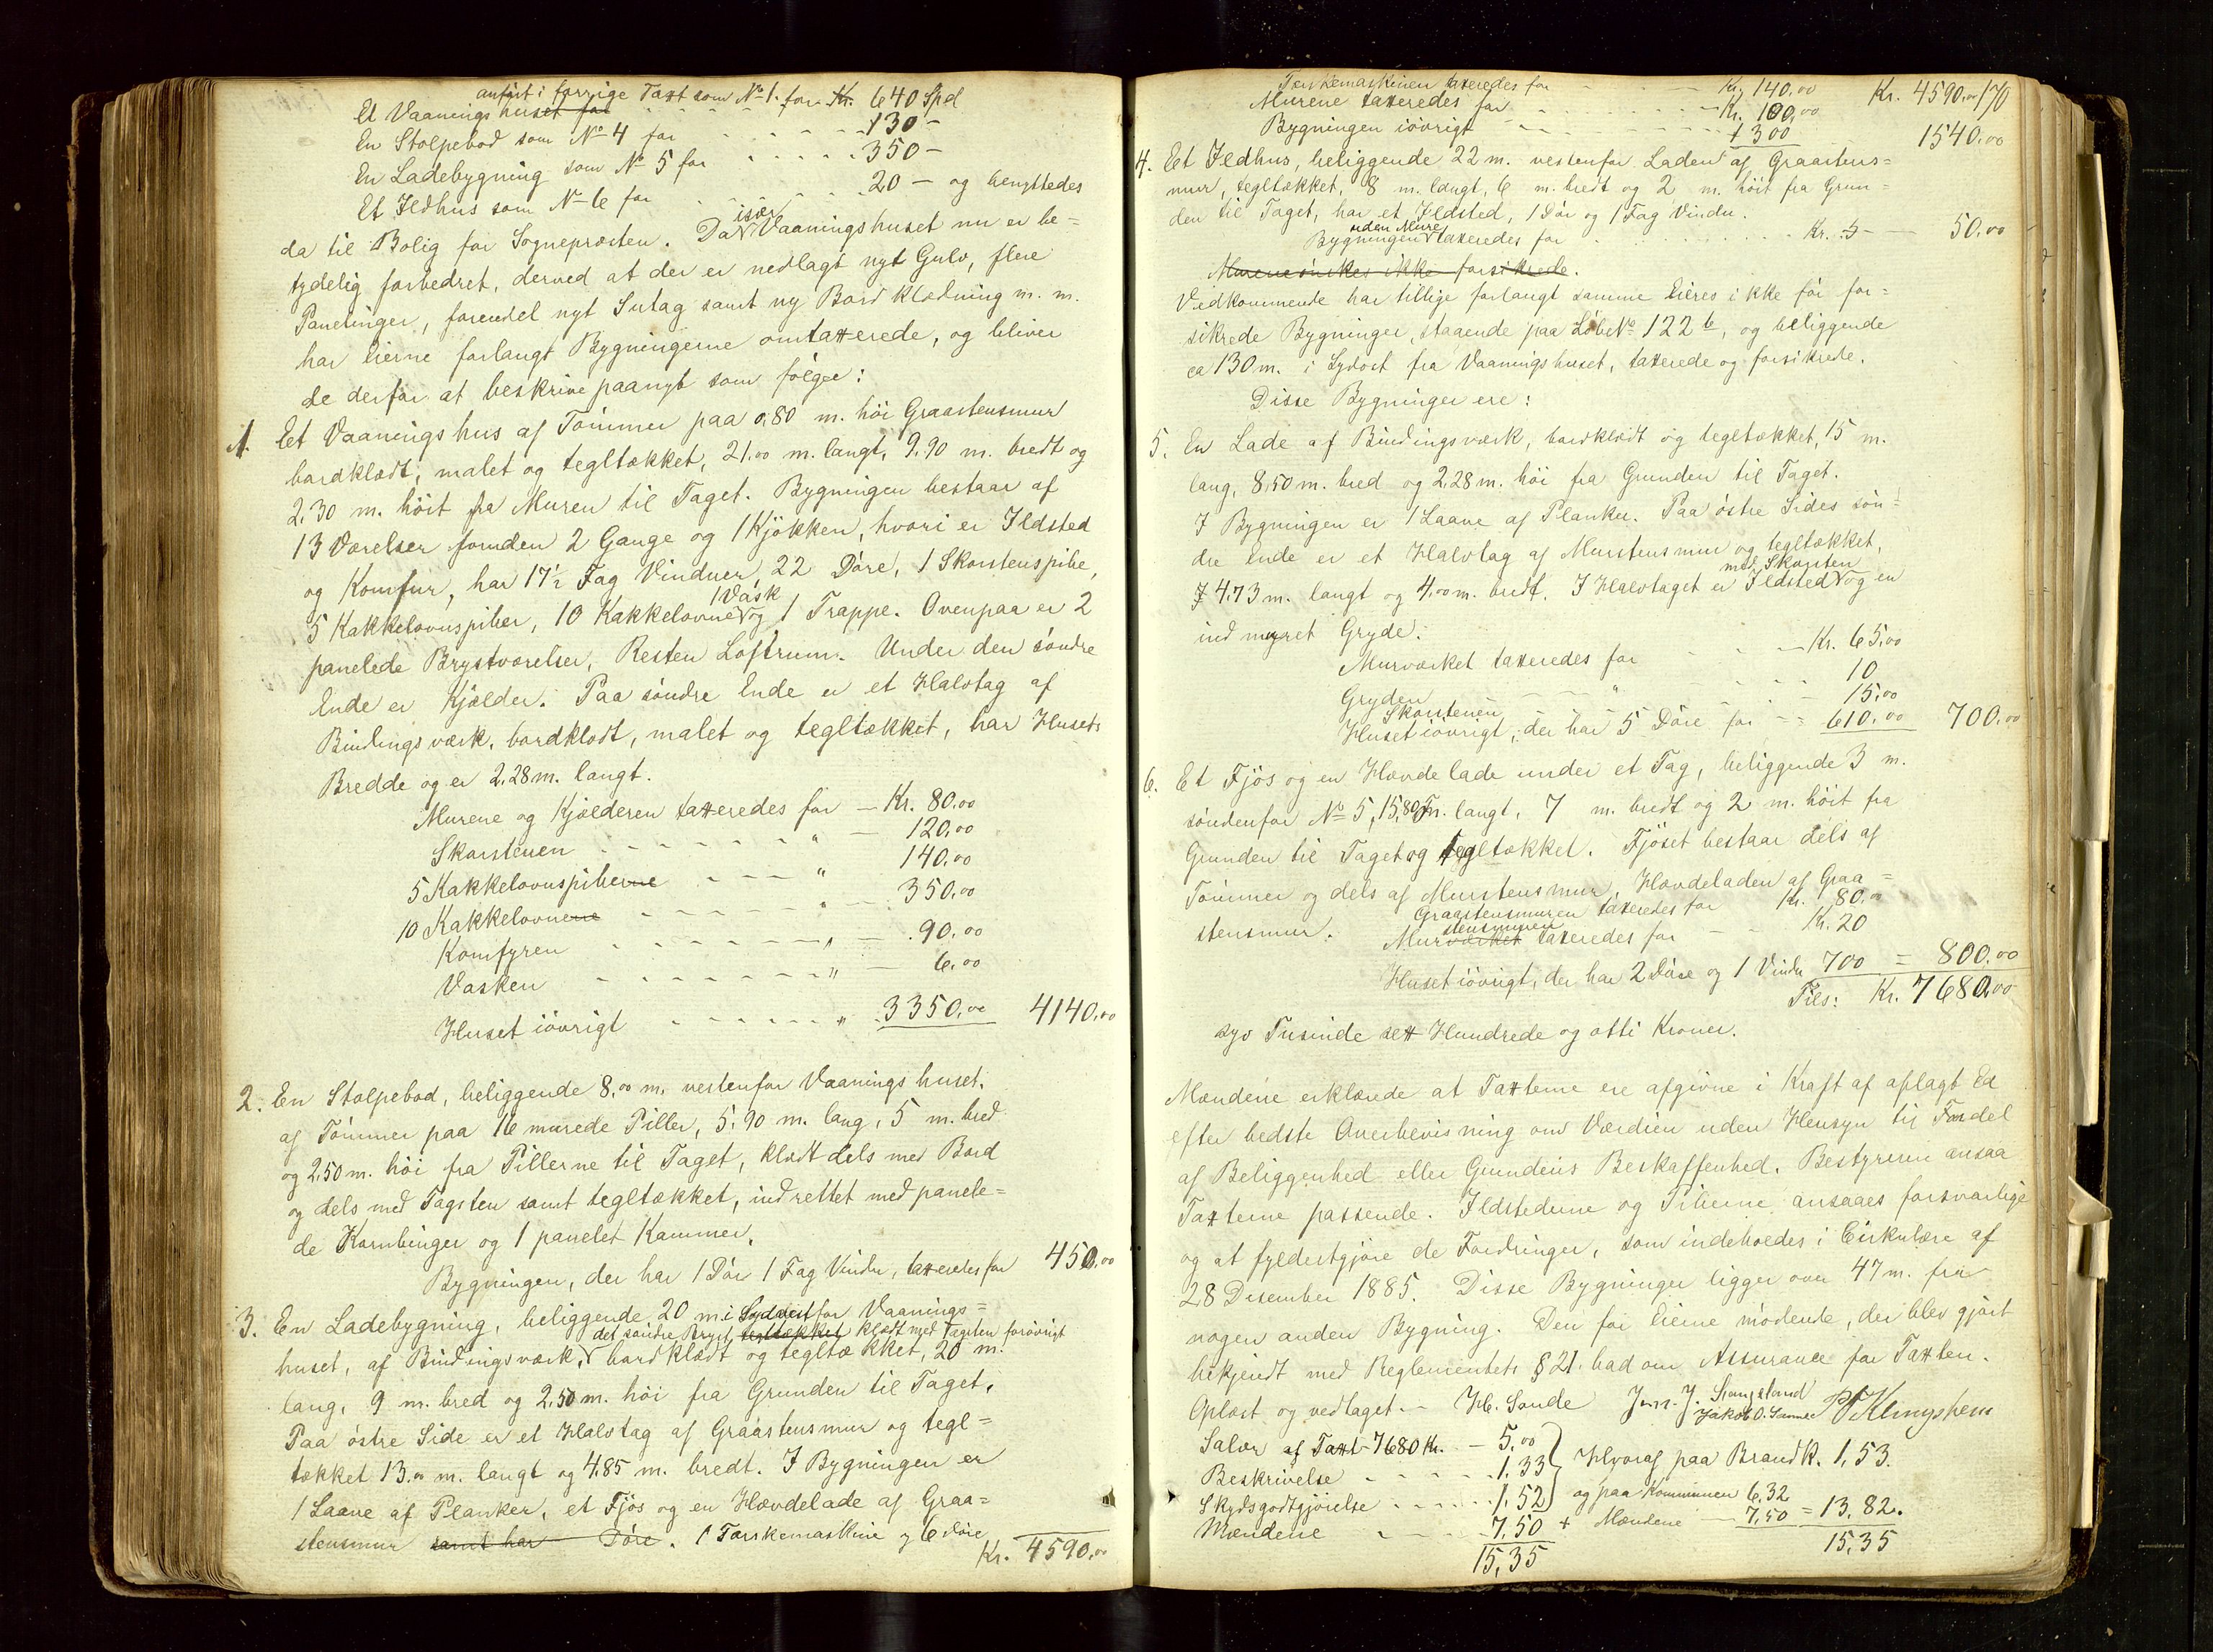 anført i forrige Taxt som No 1. for Kr. 640 Spd
Et Vaaningshuset for
En Stolpebod som No 4 for - - - - - 130 -
En Ladebygning som No 5 for - - - - - 350 -
Et Ildhus som No 6 for - - - 20 - og benyttedes
da til Bolig for Sognepræsten. Da især Vaaningshuset nu er be=
tydelig forbedret, derved at der er nedlagt nyt Gulv, flere
Panelinger, forendel nyt Sutag samt ny Bordklædning m. m.
har Eierne forlangt Bygningerne omtaxerede, og bliver
de derfor at beskrive paanyt som følger:
1. Et Vaaningshus af Tömmer paa 0,80 m. höi Graastensmur
bordklædt, malet og tegltækket, 21.00 m. langt, 9.90 m. bredt og
2.30 m. höit fra Muren til Taget. Bygningen bestaar af
13 Værelser foruden 2 Gange og 1 Kjökken, hvori er Ildsted
og Komfur, har 17 1/2 Fag Vinduer, 22 Döre, 1 Skorstenspibe,
5 Kakkelovnspiber, 10 Kakkelovne 1 Vask og 1 Trappe. Ovenpaa er 2
panelede Brystværelser, Resten Loftrum. Under den söndre
Ende er Kjælder. Paa söndre Ende er et Halvtag af
Bindingsværk, bordklædt, malet og tegltækket, har Husets
Bredde og er 2.28 m. langt.
Murene og Kjælderen taxeredes for - Kr. 80.00
Skorstenen - - - - - - " - 120.00
5 Kakkelovnspiberne - - - " 140.00
10 Kakkelovnene - - - - - " - 350.00
Komfyren - - - - - - - " - 90.00
Vasken - - - - - - - " - 6.00
Huset iövrigt - - - - - - " 3350.00 4140.00
2. En Stolpebod, beliggende 8.00 m. vestenfor Vaaningshuset,
af Tömmer paa 16 murede Piller, 5.90 m. lang, 5 m. bred
og 2.50 m. höi fra Pillerne til Taget, klædt dels med Bord
og dels med Tagsten samt tegltækket, indrettet med panele=
de Kornbinger og 1 panelet Kammer.
Bygningen, der har 1 Dör 1 Fag Vindu, taxeredes for 450.00
3. En Ladebygning, beliggende 20 m. i Sydvest for Vaanings=
huset, af Bindingsværk, det söndre Bryst tegltækket klædt med Tagsten forövrigt bordklædt og tegltækket, 20 m.
lang, 9 m. bred og 2.50 m. höi fra Grunden til Taget.
Paa östre Side er et Halvtag af Graastensmur og tegl=
tækket 13.00 m. langt og 4.85 m. bredt. I Bygningen er
1 Laave af Planker, et Fjös og en Hævdelade af Graa=
stensmur samt har Döre. 1 Tærskemaskine og 6 Döre
Kr. 4590.00
Tærskemaskinen taxeredes for - - - Kr. 140.00 Kr. 4590.00 170
Murene taxeredes for - - - - - - Kr. 100.00
Bygningen iövrigt - - - - - - - 1300 1540.00
4. Et Ildhus, beliggende 22 m. vestenfor Laden af Graastens=
mur, tegltækket, 8 m. langt, 6 m. bredt og 2 m. höit fra Grun=
den til Taget, har et Ildsted, 1 Dör og 1 Fag Vindu.
Bygningen uden Mure taxeredes for - - - - - - Kr. 5 - 50.00
Murene önskes ikke forsikrede.
Vedkommende har tillige forlangt samme Eieres ikke för for=
sikrede Bygninger, staaende paa LöbeNo 122 b, og beliggende
ca 130 m. i Sydost fra Vaaningshuset, taxerede og forsikrede.
Disse Bygninger ere:
5. En Lade af Bindingsværk, bordklædt og tegltækket, 15 m.
lang, 8.50 m. bred og 2.28 m. höi fra Grunden til Taget.
I Bygningen er 1 Laave af Planker. Paa östre Sides sön=
dre Ende er et Halvtag af Murstensmur og tegltækket,
4.73 m. langt og 4.00 m. bredt. I Halvtaget er Ildsted med Skorsten og en
indmuret Gryde.
Murværket taxeredes for - - - Kr. 65.00
Gryden - - - " - - - 10
Skorstenen - - - - - 15.00
Huset iövrigt, der har 5 Döre for - - 610.00 700.00
6. Et Fjös og en Hævdelade under et Tag, beliggende 3 m.
söndenfor No 5, 15,80 m. langt, 7 m. bredt og 2 m. höit fra
Grunden til Taget og tegltækket. Fjöset bestaar dels af
Tömmer og dels af Murstensmur, Hævdeladen af Graa=
stensmur. Graastensmuren taxeredes for Kr. 80.00
Murværket stensmuren taxeredes for - - Kr. 20
Huset iövrigt, der har 2 Döre og 1 Vindu 700 = 800.00
Tils: Kr. 7680.00
syv Tusinde sex Hundrede og otti Kroner.
Mændene erklærede at Taxterne ere afgivne i Kraft af aflagt Ed
efter bedste Overbevisning om Værdien uden Hensyn til Fordel
af Beliggenhed eller Grundens Beskaffenhed. Bestyreren ansaa
Taxterne passende. Ildstederne og Piberne ansaaes forsvarlige
og at fyldestgjöre de Fordringer, som indeholdes i Cirkulære af
28 December 1885. Disse Bygninger ligger over 47 m. fra
nogen anden Bygning. Den for Eierne mödende, der blev gjort
bekjendt med Reglementets § 21. bad om Assurance for Taxten.
Oplæst og vedtaget. - H. Sande Jakob O. Sunner
Salær af Taxt 7680 Kr. - 5.00
Beskrivelse - - - - - 1.33 Hvoraf paa Brandk. 1,53.
Skydsgodtgjörelse - - - - - 1.52 og paa Kommunen 6.32
Mændene - - - - 7.50 + Mændene - 7.50 = 13,82.
15,35 15,35